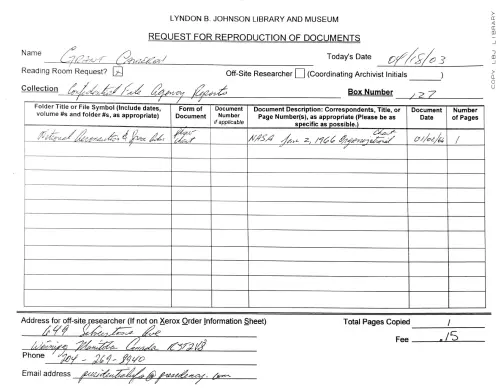 LYNDON B. JOHNSON LIBRARY AND MUSEUM
REQUEST FOR REPRODUCTION OF DOCUMENTS
COPY LBJ LIBRARY
Name Grant Today's Date 04/15/03
Reading Room Request? Off-Site Researcher (Coordinating Archivist Initials )
Collection Confidential File Agency Reports Box Number 127
Folder Title or File Symbol (Include dates, volume #s and folder #s, as appropriate) Form of Document Document Number if applicable Document Description: Correspondents, Title, or Page Number(s), as appropriate (Please be as specific as possible.) Document Date Number of Pages
National Aeronautics & Space chart NASA Jan 2, 1966 Organizational Chart 1
Address for off-site researcher (If not on Xerox Order Information Sheet) Total Pages Copied 1
649 Silverstone Ave Fee .15
Winnipeg Manitoba Canada R3T2V8
Phone 204-269-8940
Email address